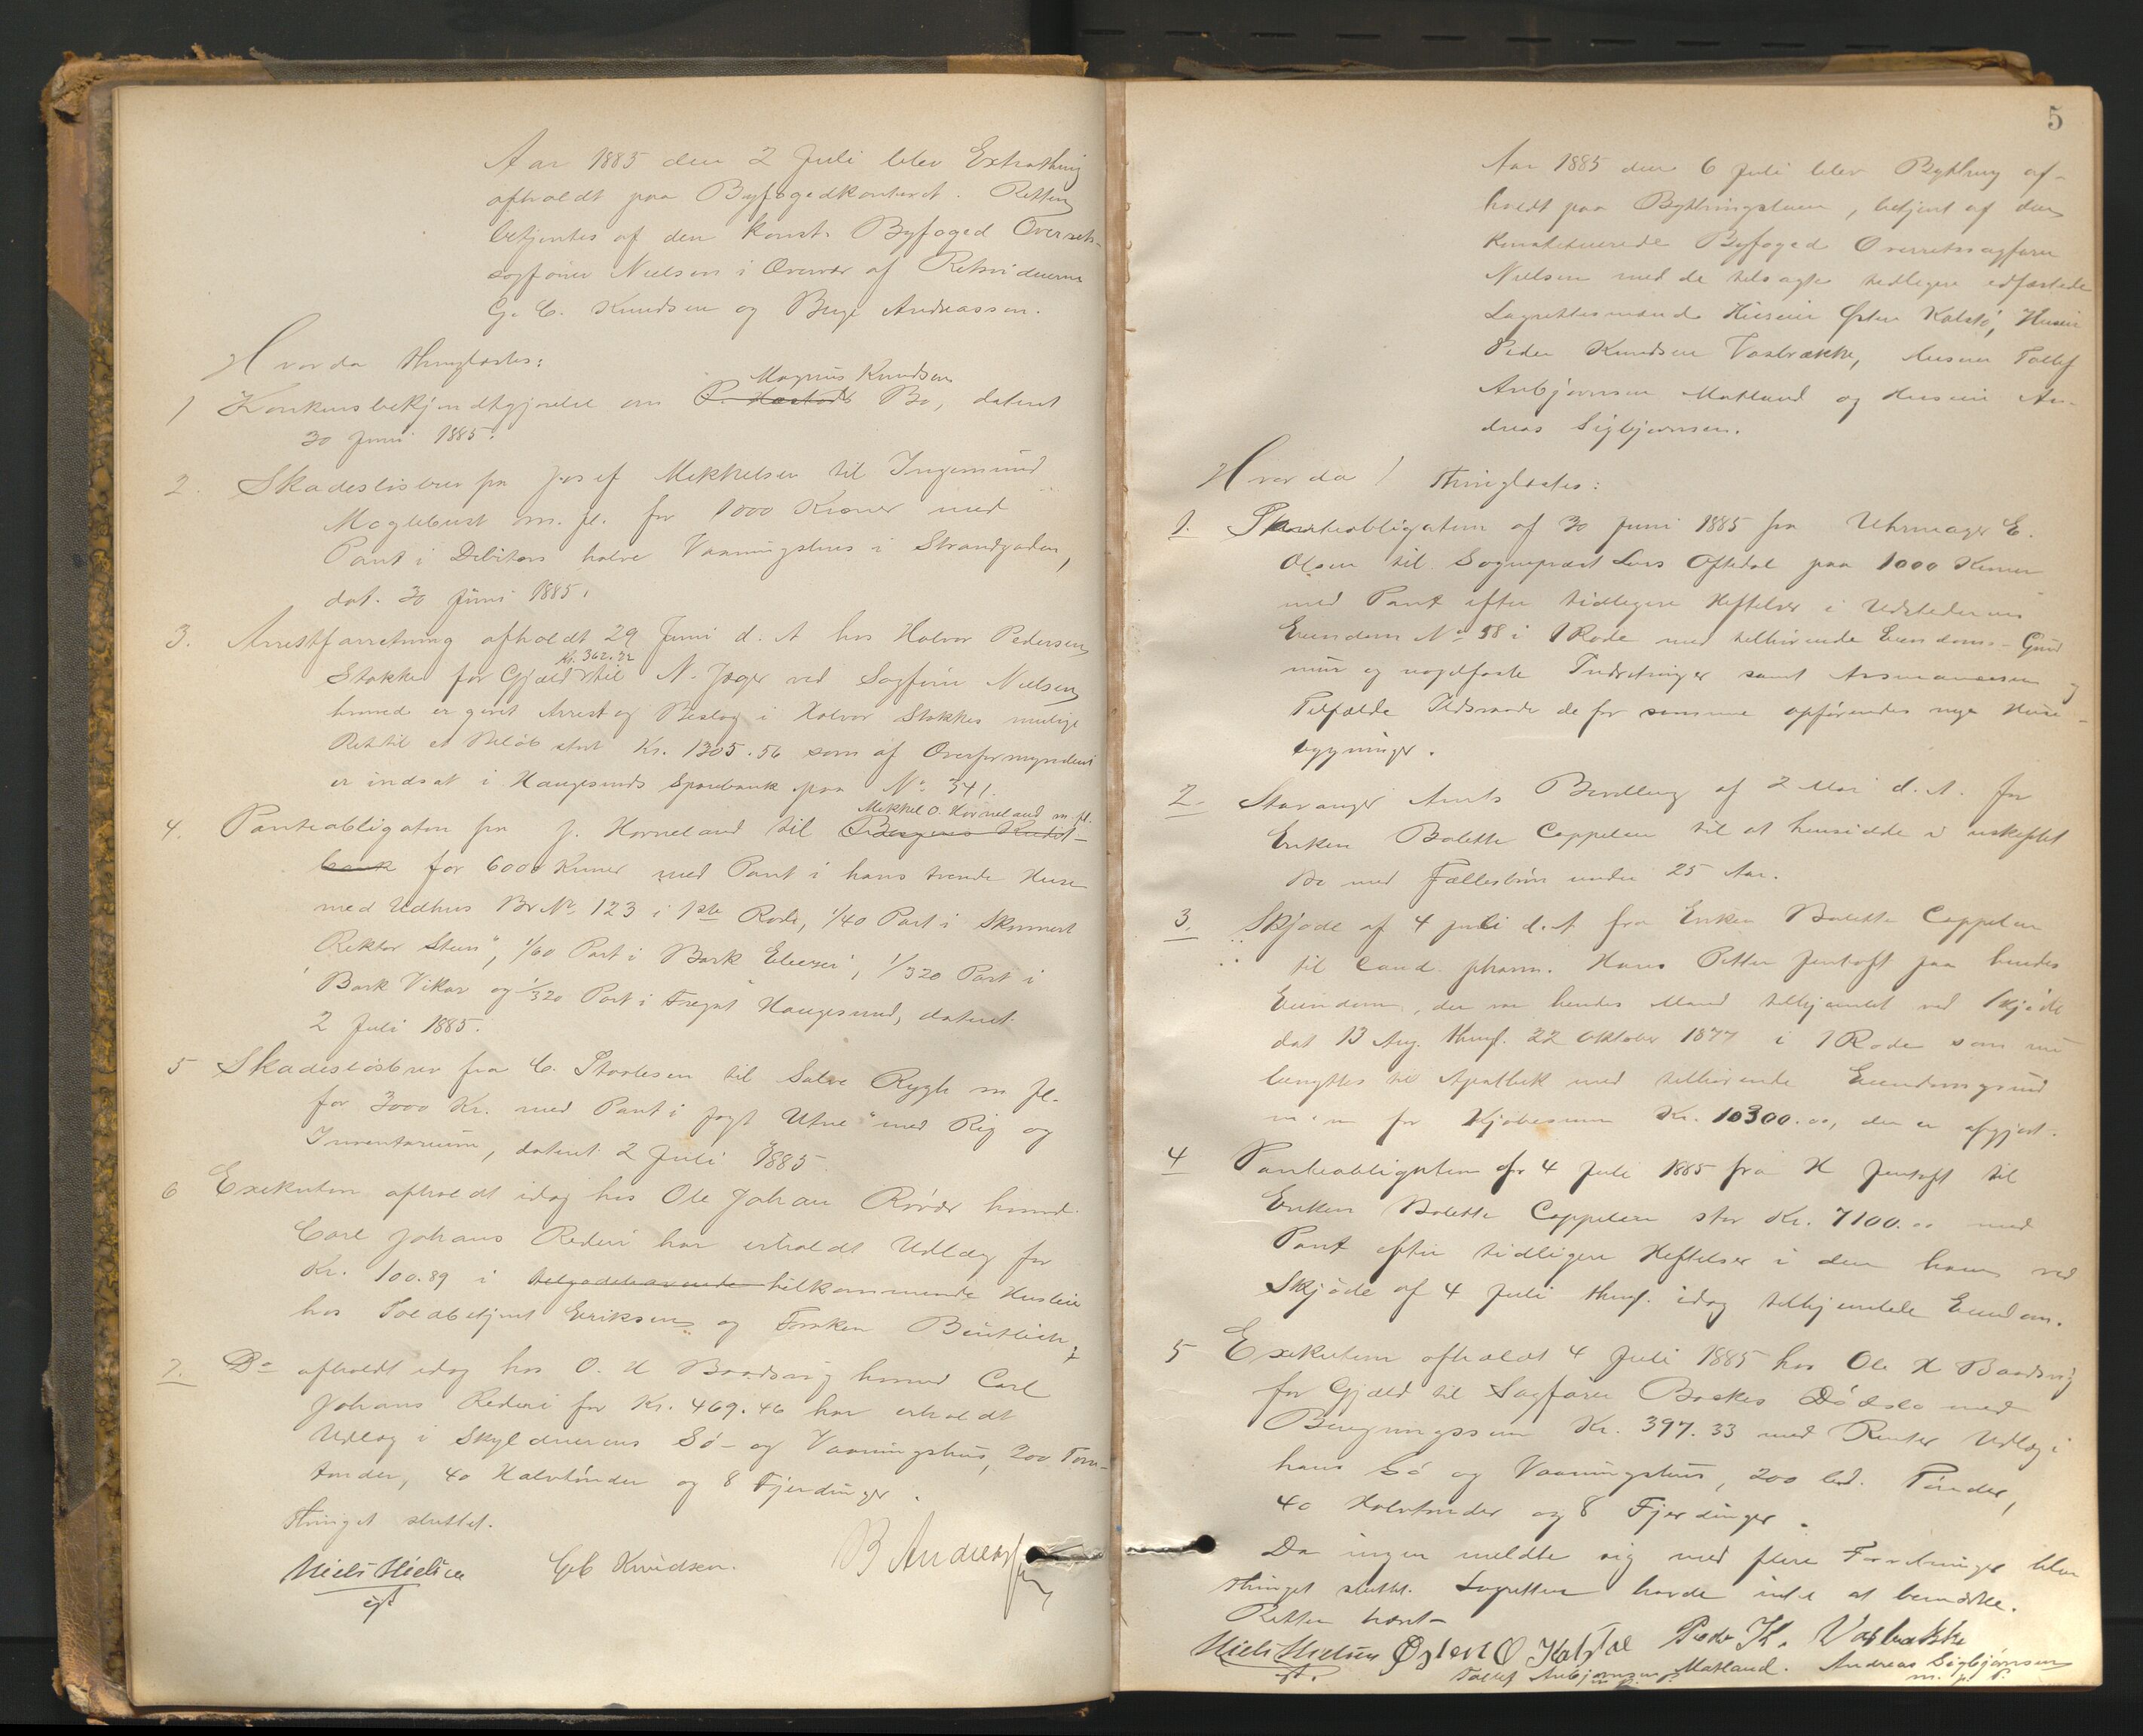 Aar 1885 den 2 Juli blev Extrathing
afholdt paa Byfogedkontoret. Retten
betjentes af den konst. Byfoged Overrets-
sagfører Nielsen i Overvær af Retsvidnerne
G. C. Knudsen og Berge Andreassen.
Hvorda thinglæstes:
Magnus Knudsen
1 Konkursbekjendtgjørelse om Bo, dateret
30 Juni 1885.
2. Skadesløsbrev fra Josef Mikkelsen til Ingemund
Møglebust m. fl. for 1000 Kroner med
Pant i Debitors halve Vaaningshus i Strandgaden,
dat. 30 Juni 1885.
3. Arrestforretning afholdt 29 Juni d. A. hos Halvor Pedersen
Kr. 362.32
Stakke for Gjæld til N. Jæger ved Sagfører Nielsen
hvorved er gjort Arrest og Beslag i Halvor Stakkes mulige
Ret til et Beløb stort Kr. 1305.56 som af Overformynderiet
er indsat i Haugesunds Sparebank paa No. 341.
Mikkel O. Horneland m. fl.
4. Panteobligation fra J. Horneland til Bergens Kredit-
bank for 6000 Kroner med Pant i hans tvende Huse
med Udhus Br No. 123 i 1ste Rode, 1/40 Part i Skonnert
"Rektor Steen", 1/60 Part i Bark "Eliezer", 1/320 Part i
Bark Vikar og 1/320 Part i Fregat "Haugesund, dateret
2 Juli 1885.
5 Skadesløsbrev fra C. Thorlesen til Salve Rygh m fl.
for 3000 Kr. med Pant i Jagt "Utne" med Rig og
Inventarium, dateret 2 Juli 1885.
6 Exekution afholdt idag hos Ole Johan Røvær hvorved
Carl Johans Rederi har erholdt Udlæg for
Kr. 100.89 i tilgodehavende tilkommende Husleie
hos Toldbetjent Eriksen og Frøken Beutlich
7. Do afholdt idag hos O. H Baadsvig hvorved Carl
Johans Rederi for Kr. 469.46 har erholdt
Udlæg i Skyldnerens Sø- og Vaaningshus, 200 Tom-
tønder, 40 Halvtønder og 8 Fjerdinger.
Thinget sluttet.
Niels Nielsen Geb Knudsen. B Andreassen
cst

5
Aar 1885 den 6 Juli blev Bything af-
holdt paa Bythingstuen, betjent af den
konstituerede Byfoged Overretssagfører
Nielsen med de tilsagte tidligere edfæstede
Lagrettesmænd Huseier Østen Kalstø, Huseier
Peder Knudsen Vasbrække, Huseier Tollef
Anbjørnsen Matland og Huseier An-
dreas Sigbjørnsen.
Hvorda thinglæstes:
1. Panteobligation af 30 Juni 1885 fra Uhrmager E.
Olsen til Sogneprest Lars Oftedal paa 1000 Kroner
med Pant efter tidligere Heftelser i Udstederens
Eiendom No 58 i 1 Rode med tilhørende Eiendoms-Grund
mur og nagelfaste Indretninger samt Assurancesum og
Tilfælde Udsraade de for samme opførendes nye Huse-
bygninger.
2. Stavanger Amts Bevilling af 2 Mai d. A. for
Enken Bolette Cappelen til at hensidde i uskiftet
Bo med Fællesbørn under 25 Aar.
3. Skjøde af 4 Juli d. A fra Enken Bolette Cappelen
til Cand. pharm. Hans Petter Jentoft paa hendes
Eiendom, der var hendes Mand tilhjemlet ved Skjøde
dat 13 Aug. thingl. 22 Oktober 1877 i 1 Rode som nu
benyttes til Apothek med tilhørende Eiendomsgrund
m. m for Kjøbesum Kr. 10300.00, der er afgjort.
4 Panteobligation af 4 Juli 1885 fra H Jentoft til
Enken Bolette Cappelen stor Kr. 7100.00 med
Pant efter tidligere Heftelser i den ham ved
Skjøde af 4 Juli thingl. idag tilhjemlede Eiendom.
5 Exekution afholdt 4 Juli 1885 hos Ole H Baadsvig
for Gjæld til Sagfører Backes Dødsbo med
Beregningssum Kr. 397.33 med Renter Udlæg i
hans Sø og Vaaningshus, 200 Tønder,
40 Halvtønder og 8 Fjerdinger.
Da ingen meldte sig med flere Forretninger blev
Thinget sluttet. Lagretten havde intet at bemærke.
Retten hævet
Niels Nielsen Østen O Kalstø Peder K. Vasbrække
cst. Tollef Anbjørnsen Matland. Andreas Sigbjørnsen
m. p. P. m. p. P.